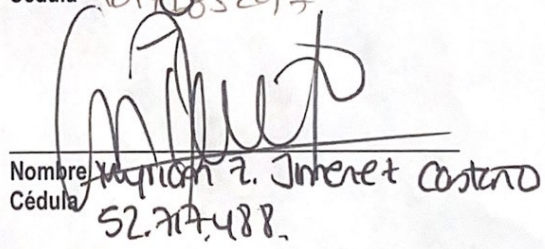 Nombre Myriam Z. Jimenez Castaño
Cédula 52.717.488.